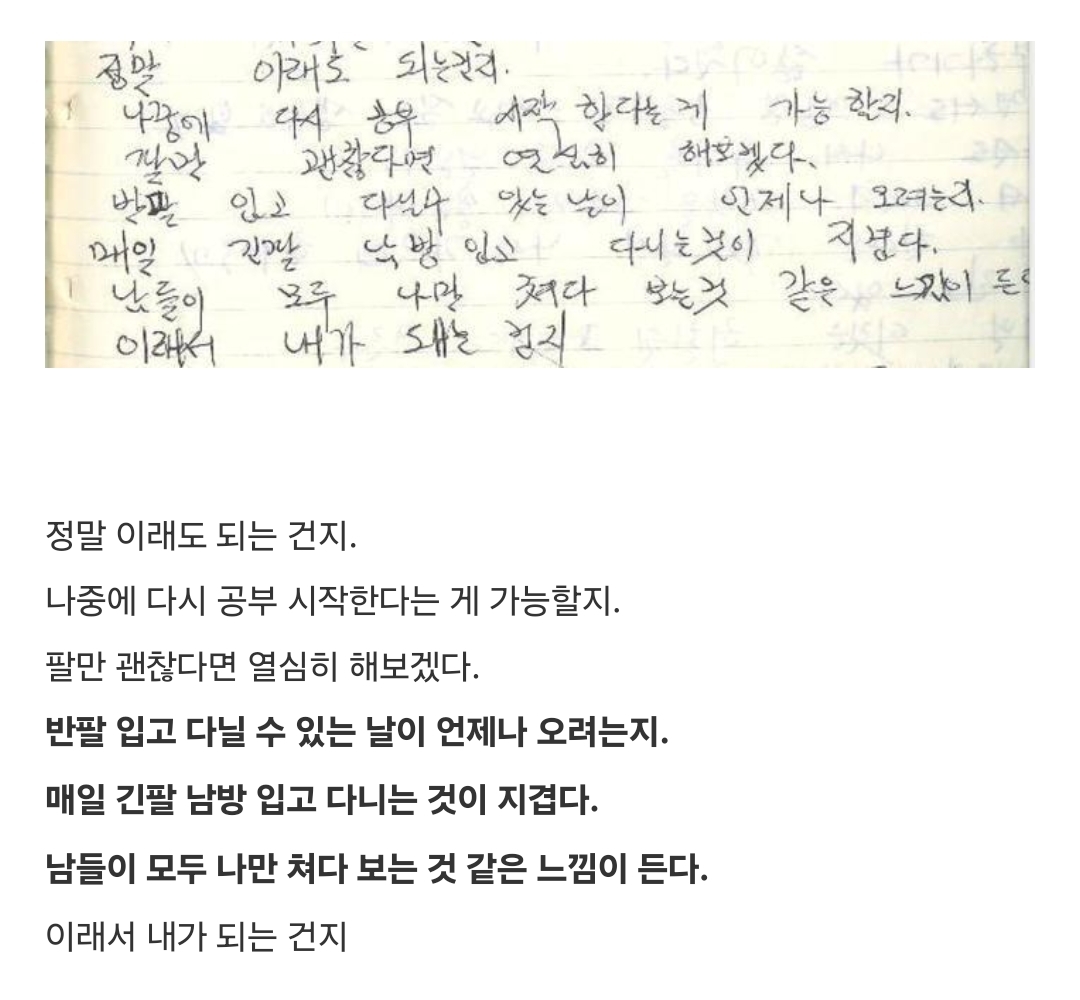 정말 이래도 되는건지.
나중에 다시 공부 시작 한다는 게 가능 할지.
팔만 괜찮다면 열심히 해보겠다.
반팔 입고 다닐수 있는 날이 언제나 오려는지.
매일 긴팔 남방 입고 다니는것이 지겹다.
남들이 모두 나만 쳐다 보는것 같은 느낌이 든다
이래서 내가 되는 건지
정말 이래도 되는 건지.
나중에 다시 공부 시작한다는 게 가능할지.
팔만 괜찮다면 열심히 해보겠다.
반팔 입고 다닐 수 있는 날이 언제나 오려는지.
매일 긴팔 남방 입고 다니는 것이 지겹다.
남들이 모두 나만 쳐다 보는 것 같은 느낌이 든다.
이래서 내가 되는 건지